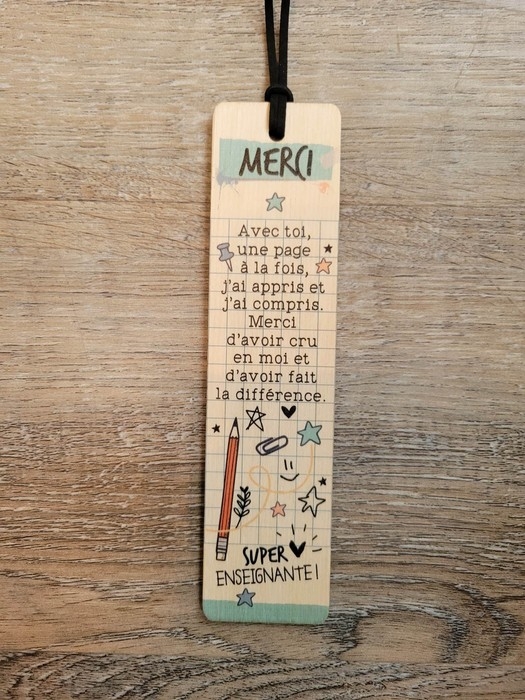 MERCI
Avec toi,
une page
à la fois,
j'ai appris et
j'ai compris.
Merci
d'avoir cru
en moi et
d'avoir fait
la différence.
SUPER
ENSEIGNANTE!